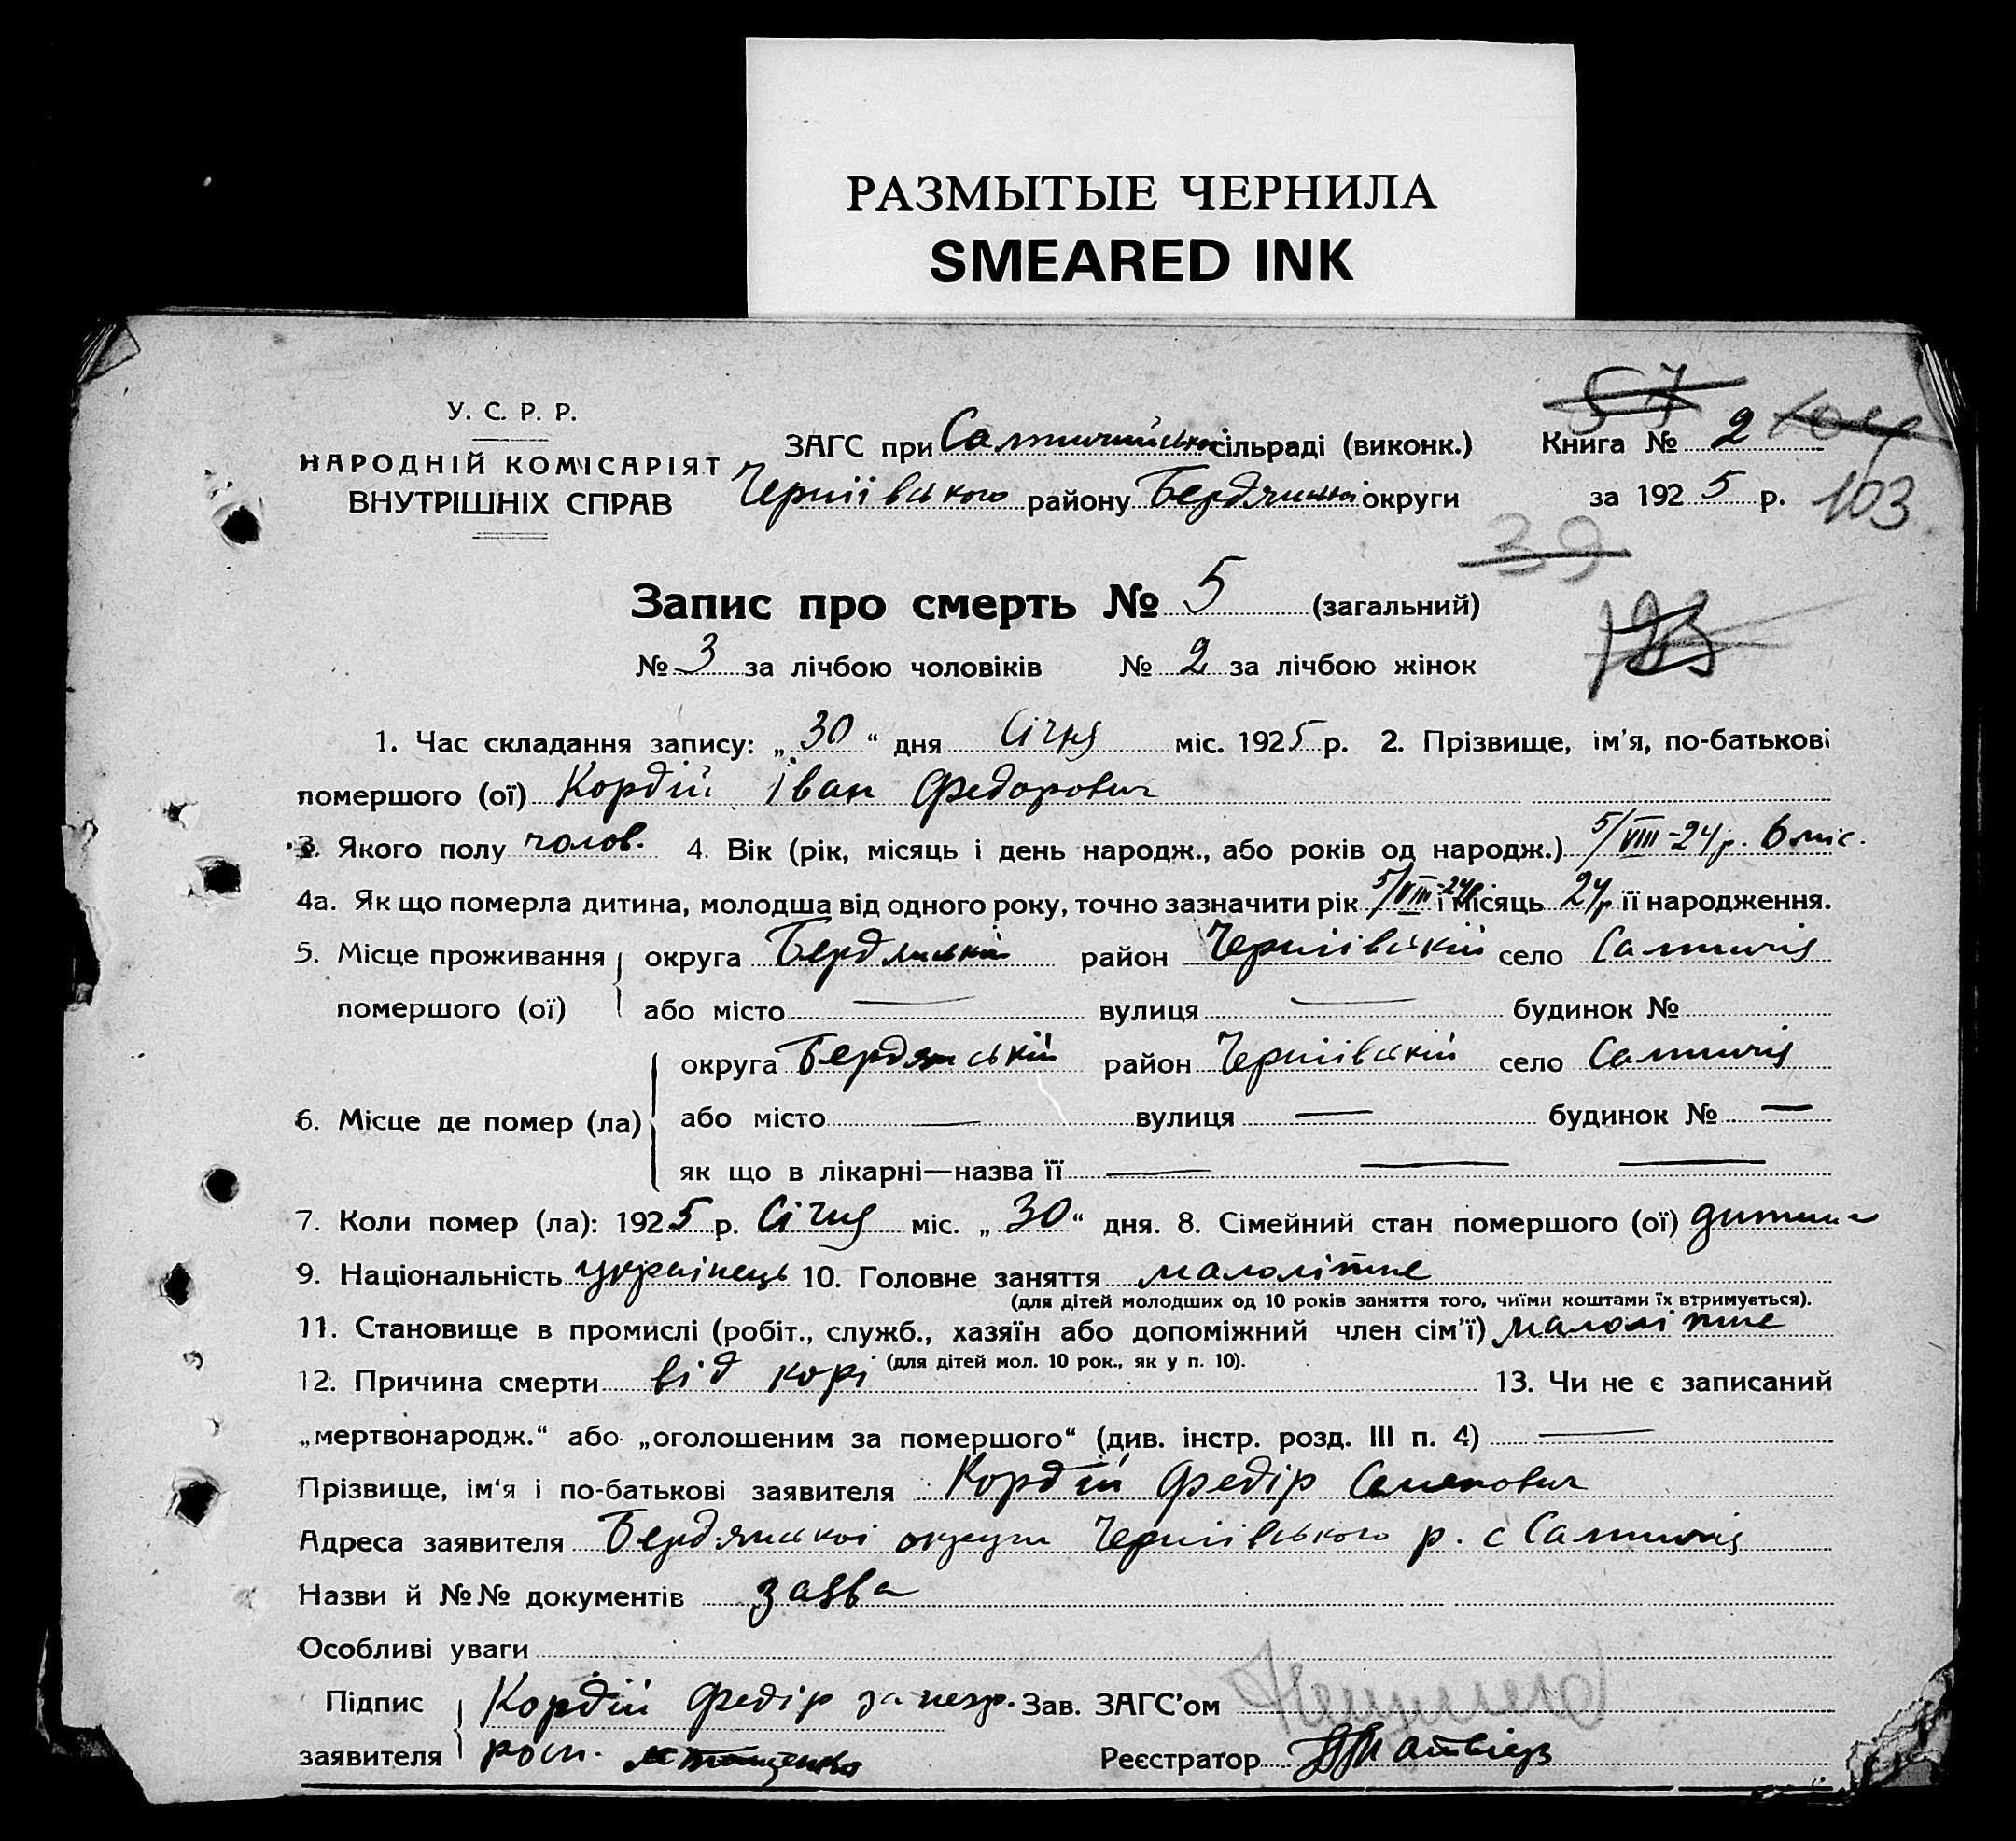 РАЗМЫТЫЕ ЧЕРНИЛА
SMEARED INK
У. С. Р. Р.
НАРОДНІЙ КОМІСАРІЯТ
ВНУТРІШНІХ СПРАВ
ЗАГС при Салтичийської сільраді (виконк.)
Чернігівського району Бердянської округи
57
Книга № 2 104
за 1925 р. 103
39
Запис про смерть № 5 (загальний)
123
№ 3 за лічбою чоловіків № 2 за лічбою жінок
1. Час складання запису: „30“ дня Січня міс. 1925 р. 2. Прізвище, ім'я, по-батькові
помершого (ої) Кордій Іван Федорович
3. Якого полу чолов. 4. Вік (рік, місяць і день народж., або років од народж.) 5/VIII-24р. 6 міс.
4а. Як що померла дитина, молодша від одного року, точно зазначити рік 5/VIII-24р і місяць 24р її народження.
5. Місце проживання округа Бердянській район Чернігівській село Салтичія
помершого (ої) або місто — вулиця — будинок №
округа Бердянській район Чернігівській село Салтичія
6. Місце де помер (ла) або місто — вулиця — будинок № —
як що в лікарні—назва її — — —
7. Коли помер (ла): 1925 р. Січня міс. „30“ дня. 8. Сімейний стан помершого (ої) дитина
9. Національність українець 10. Головне заняття малолітнє
(для дітей молодших од 10 років заняття того, чиїми коштами їх втримується).
11. Становище в промислі (робіт., служб., хазяїн або допоміжний член сім'ї) малолітнє
(для дітей мол. 10 рок., як у п. 10).
12. Причина смерти від корі 13. Чи не є записаний
„мертвонародж.“ або „оголошеним за помершого“ (див. інстр. розд. III п. 4) —
Прізвище, ім'я і по-батькові заявителя Кордій Федір Семенович
Адреса заявителя Бердянської округи Чернігівського р. с Салтичія
Назви й №№ документів заява
Особливі уваги
Підпис Кордій Федір за негр. Зав. ЗАГС'ом
заявителя росп. Реєстратор